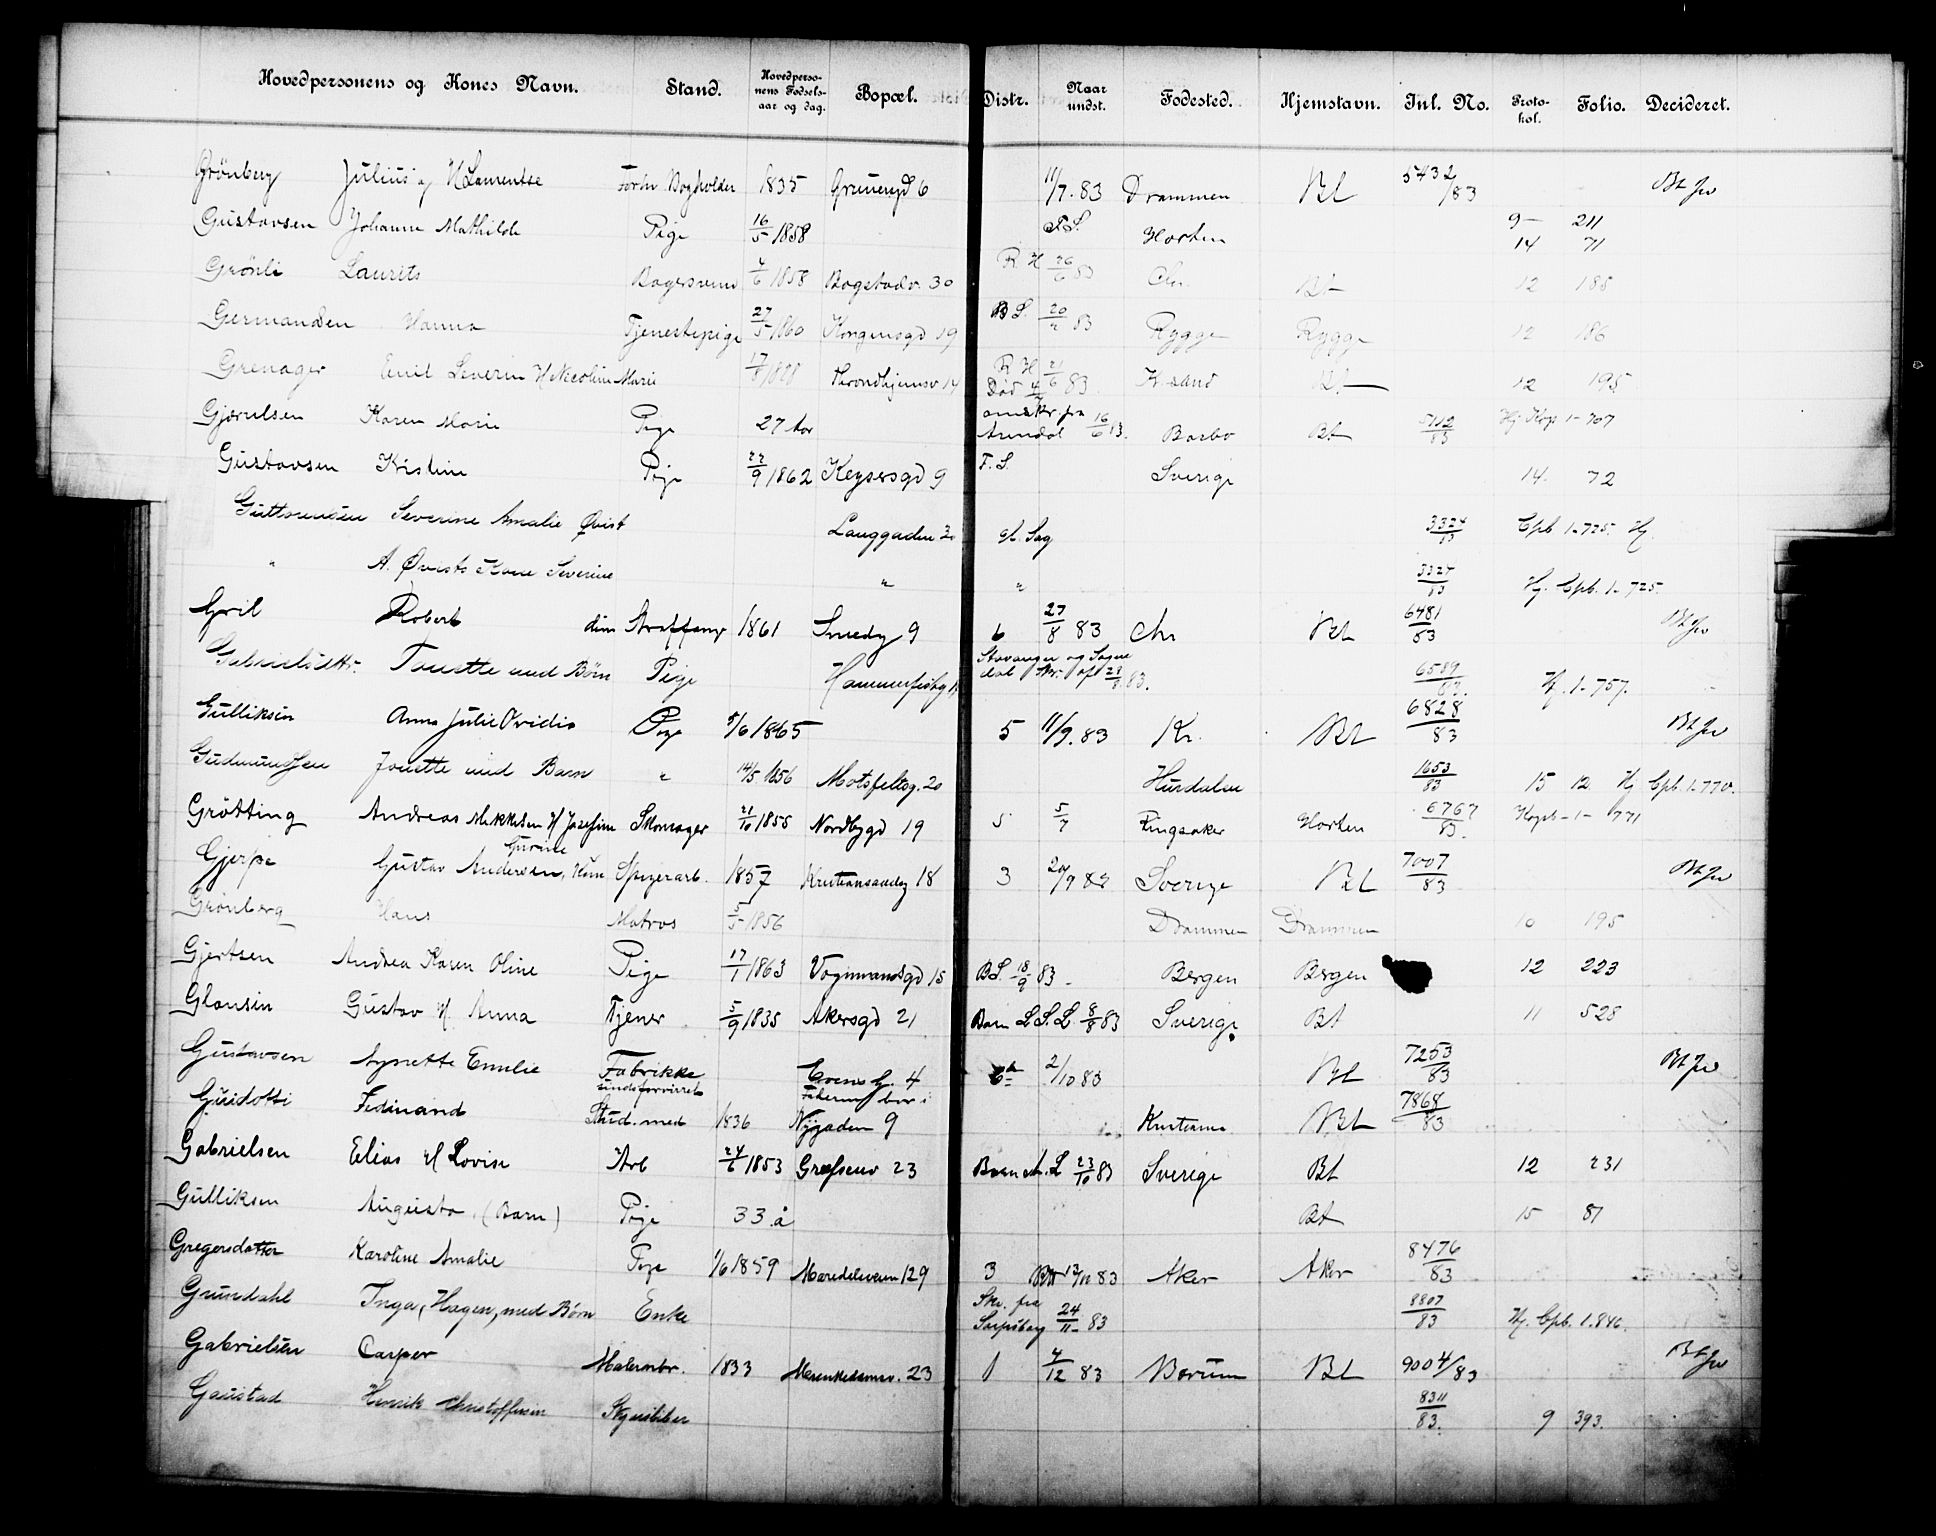 Hovedpersonens og Kones Navn. Stand. Hovedpersonens Fødselsaar og dag. Bopæl. Distr. Naar undst. Fødested. Hjemstavn. Inl. No. Protokol. Folio. Decideret.
Grönberg Julius og H Laurentse Forhv. Bogholder 1835 Grünergd 6 11/7. 83 Drammen Bt 5432/83
Gustavsen Johanne Mathilde Pige 16/5 1858 F.S. Horten 9 — 211
14 71
Grönli Laurits Bagersvend 4/6 1858 Bogstadv. 30 R. H 26/6 83 Chr. Bt 12 185
Germandsen Hanna Tjenestepige 27/5 1860 Kongensgd 19 B S. 83 Rygge Rygge 12 186
Grenager Emil Severin H Nicoline Marie 17/8 1828 Trondhjemsv 14 R H 21/6 83. K.sand Bt 12 195
Gjerulsen Karen Marie Pige 27 Aar omskr. fra Arendal 16/6 83. Barbo Bt 5112/83 Hj. Kop 1-707
Gustavsen Kristine Pige 22/9 1862 Keysersgd 9 F. S. Sverige 14. 72
Guttormsen Severine Amalie Qvist Langgaden 30 gl. Sag 3324/83 Cpb 1-725. Hj.
" A. Qvists Kone Severine " " 3324/83 Hj. Cpb. 1-725.
Gril Robert dim Straffange 1861 Smedg 9 6 27/8 83 Chr Bt 6481/83
Gabrielsdttr. Tonette med Børn Pige Hammerfestg Stavanger og Sogndal Skr. af 83. 6589/83. Hj. 1-757.
Gulliksen Anna Julie Ovidia Pige 5/6 1865 5 11/9. 83 Kr. Bt 6828/83
Gudmundsen Jonette med Barn " 14/5 1856 Motzfeltsg. 20 Hurdalen 1653/83 15 12 Hj Cpb. 1-770.
Grötting Andreas Mikkelsen H Josefine Skomager 21/10 1855 Nordbygd 19 5 5/7 Ringsaker Horten 6767/83. Kopb-1- 771
Gjerpe Gustav Andersen, Kone Gurine Spigerarb. 1857 Kristiansandsg 18 3 Sverige Bt 7007/83
Grönberg Hans Matros 5/5 1856 Drammen Drammen 10 195
Gjertsen Andrea Karen Oline Pige 17/1 1863 Vognmandsgd 15 B S. 18/9 83 - Bergen Bergen 12 223
Glansin Gustav H. Anna Tjener 5/9 1835 Akersgd 21 Barn L S. L. 8/8 83 Sverige Bt 11 528
Gustavsen Agnette Emilie Fabrikke 4 6te 2/10 83 Bt 7253/83
Guidotti Ferdinand sindsforvirret Stud. med 1836 Faderen bor i Nygaden 9 Kristiania Bt 7868/83
Gabrielsen Elias H Lovise Arb 24/6 1853 Grefsenv 23 Barn A. L 23/10 83 Sverige Bt 12 231
Gulliksen Augusta, (Barn) Pige 33 å Bt 15 81
Gregersdatter Karoline Amalie Pige 1/6 1859 Maridalsveien 129 3 83 Aker Aker 8476/83
Grundahl Inga, (Hagen, med Børn Enke Skr. fra Sarpsborg 24/11 - 83 8807/83 Hj. Cpb. 1.846.
Gabrielsen Casper Malersv. 1833 Munkedamsv. 23 1 4/12 83 Bærum Bt 9004/83
Gaustad Henrik Christoffersen 8311/83. 9 393.